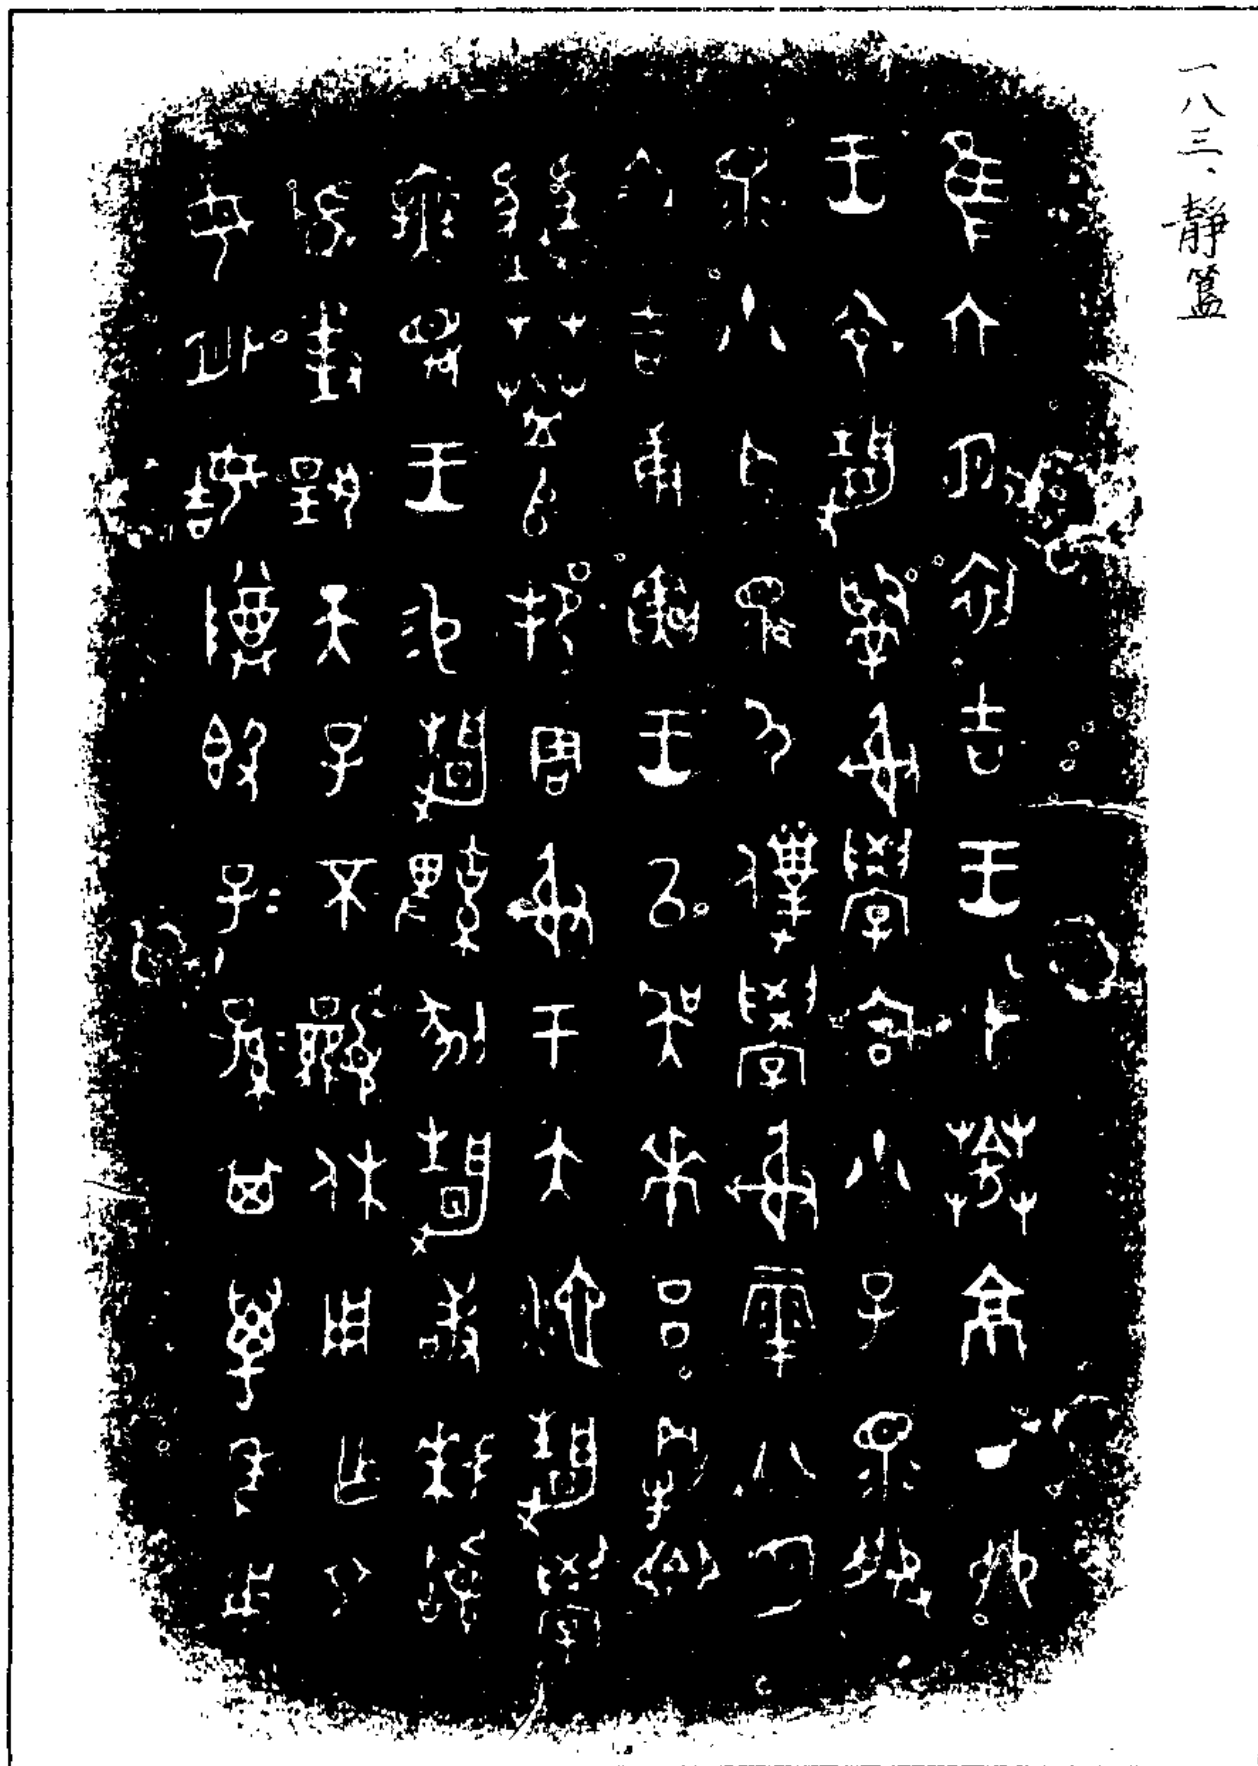 一八三、靜簋
隹六月初吉王才𦯧京丁卯
王令靜𤔲射學宮小子眔服
眔小臣眔尸僕學射𩁹八月
初吉庚寅王以吳𠦪呂㓻卿
𢽎𦯧𠂤邦周射于大池靜學
無斁王易靜鞞剢靜敢拜𩒨
首對揚天子不顯休用乍文
母外姞𢍜簋子=孫=其萬年用